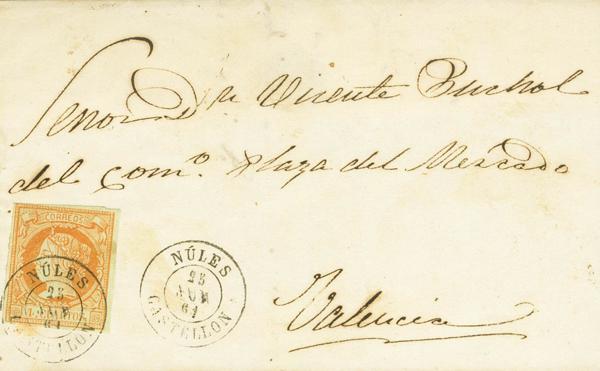 Señor Dn Vicente Puchol
del comº. Plaza del Mercado
Valencia
CORREOS
NÚLES
25
61
CASTELLON
NÚLES
25
61
CASTELLON